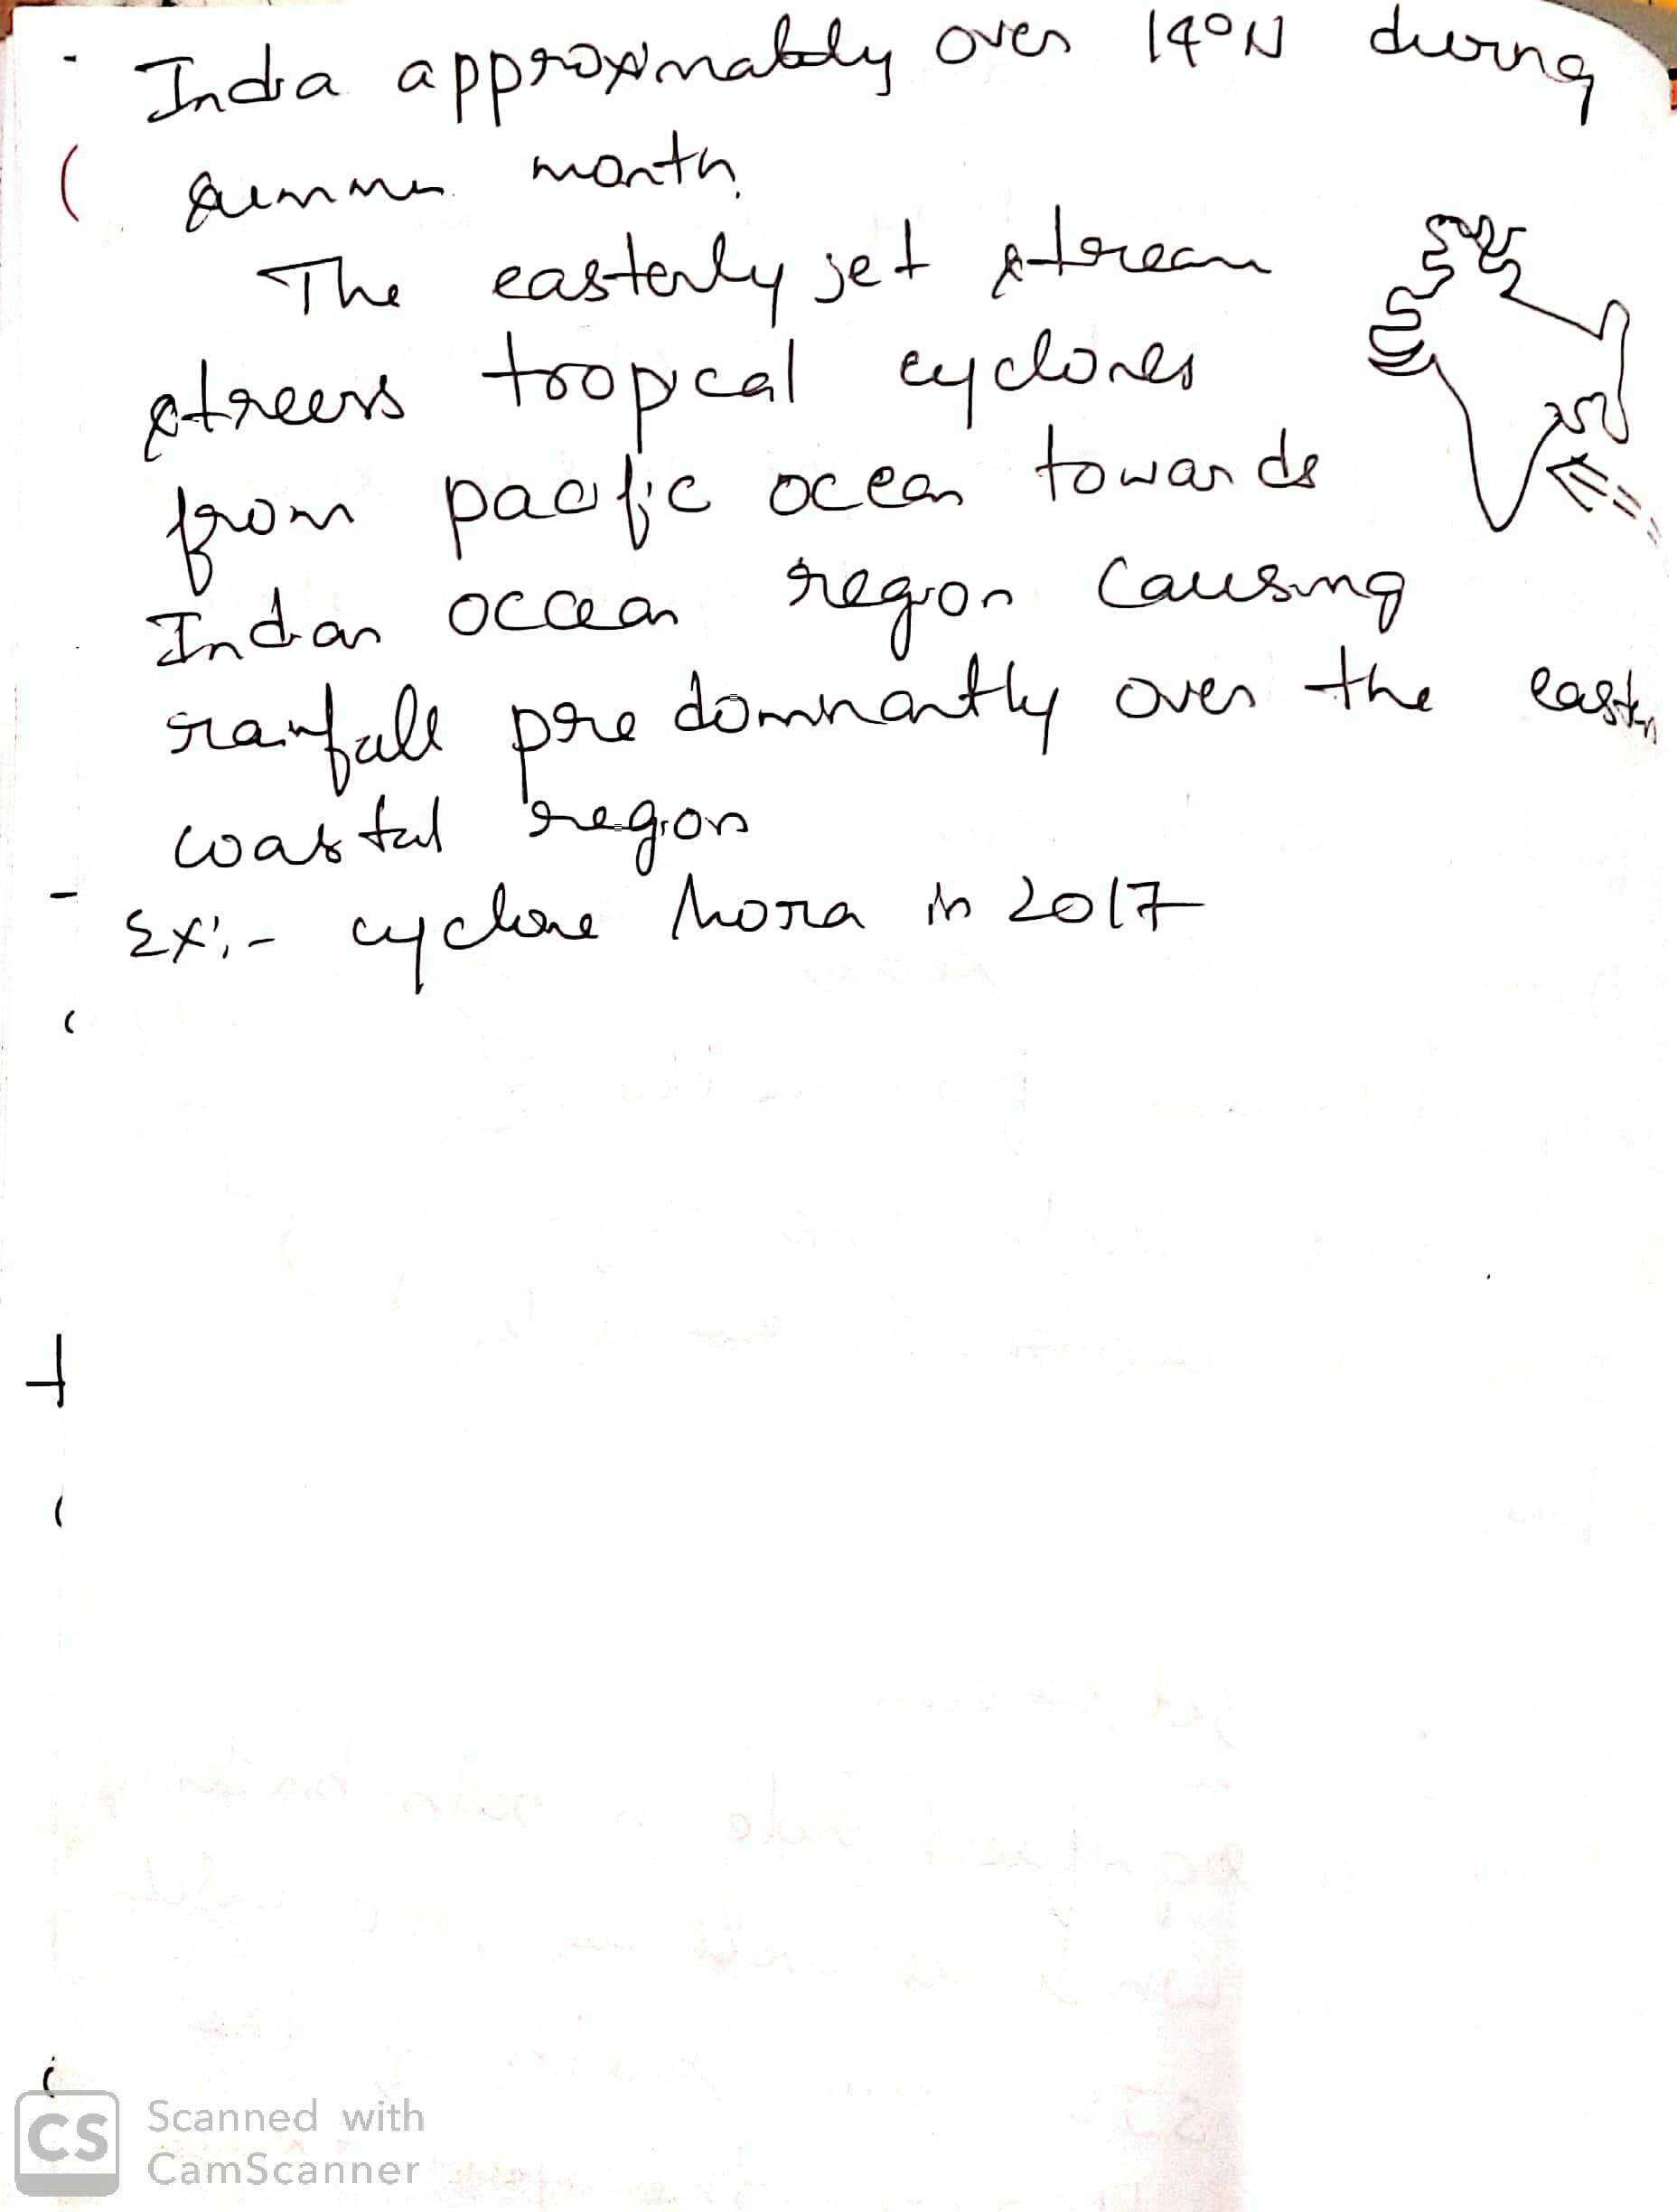 India approximately over 14°N during
summer month.
The easterly jet stream
streers tropical cyclones
from pacific ocean towards
Indian occean region causing
rainfall pre dominantly over the eastern
coastal region
- Ex:- cyclone Mora in 2017
CS Scanned with
CamScanner